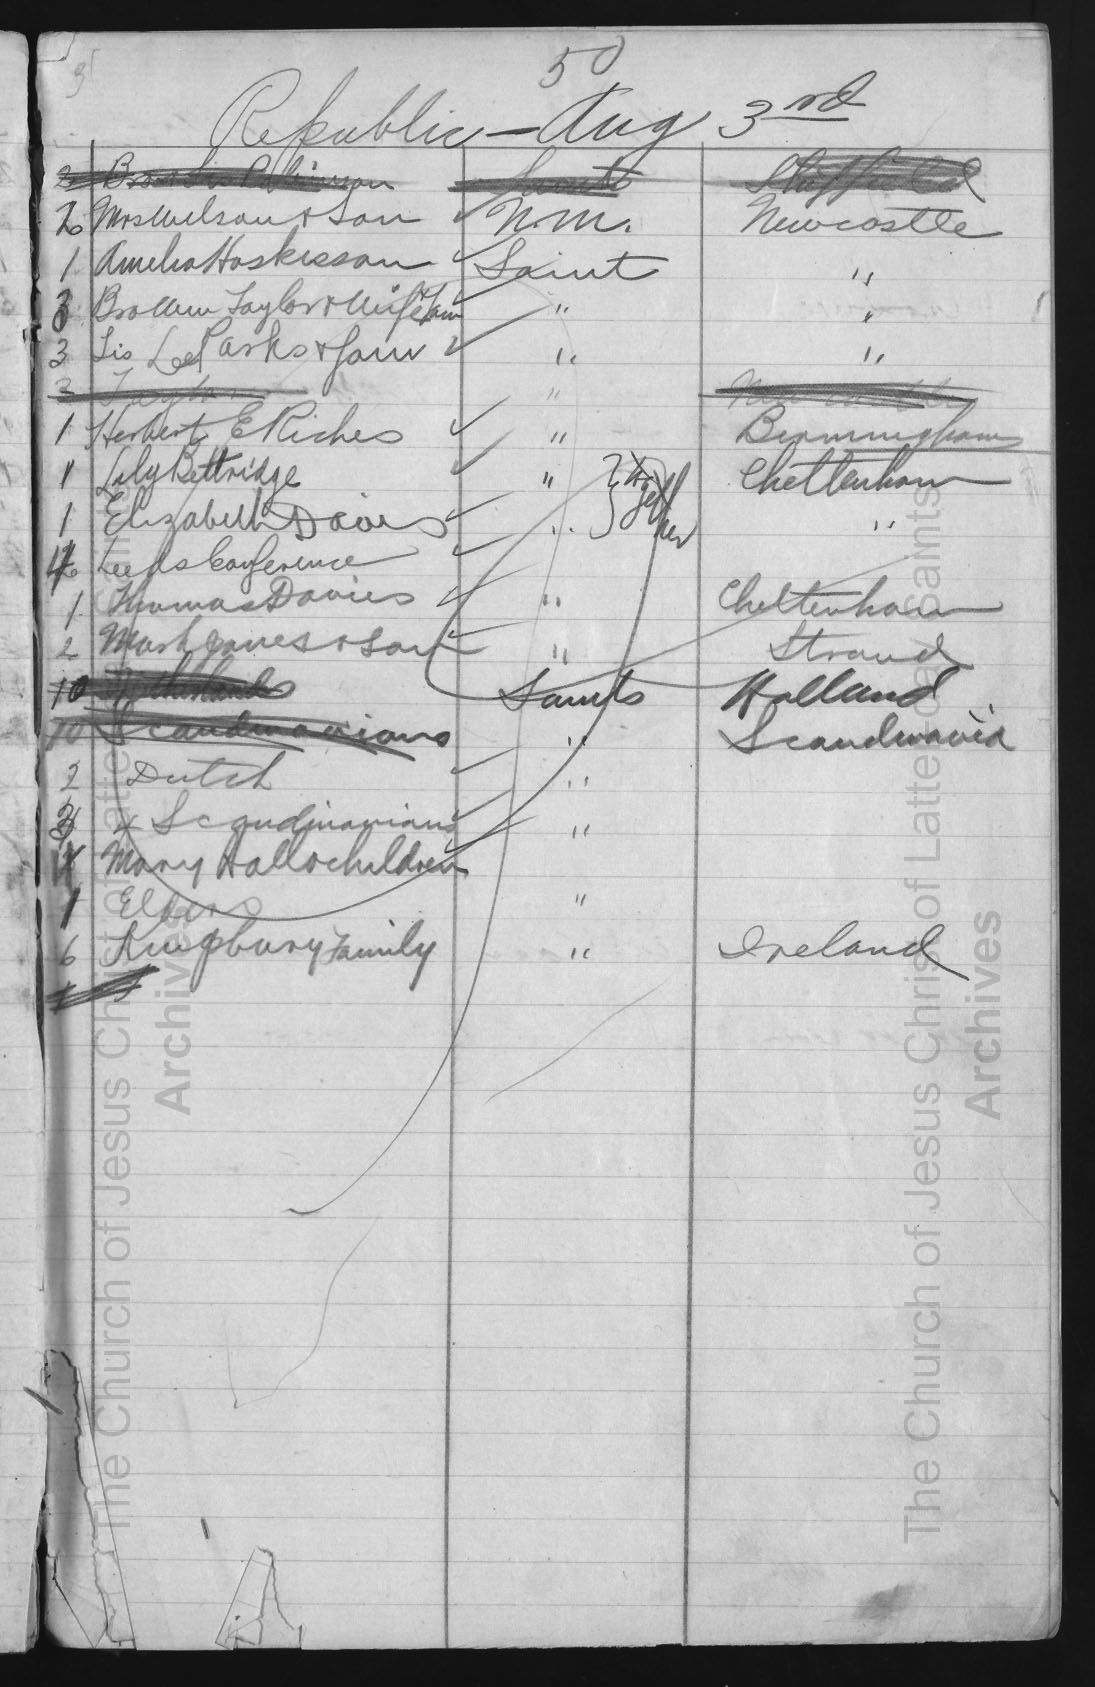 50
Republic - Aug 3rd
2 Bro & Sis Robinson Saints Sheffield
2 Mrs Wilson & Son N.M. Newcastle
1 Amelia Hoskisson Saint "
3 Bro Wm Taylor & Wife & Fam " "
3 Sis Lee Parks & Fam " "
3 Taylor " Newcastle
1 Herbert E Riches " Birmingham
1 Lily Bettridge " together Cheltenham
1 Elizabeth Davies " "
Leeds Conference
1 Thomas Davies " Cheltenham
2 Mark Jones & Son " Stroud
10 Netherlands Saints Holland
10 Scandinavians " Scandinavia
2 Dutch "
3 Scandinavians "
4 Mary Hall & children
1 Elders "
6 Kingsbury Family " Ireland
The Church of Jesus Christ of Latter-day Saints
Archives
The Church of Jesus Christ of Latter-day Saints
Archives